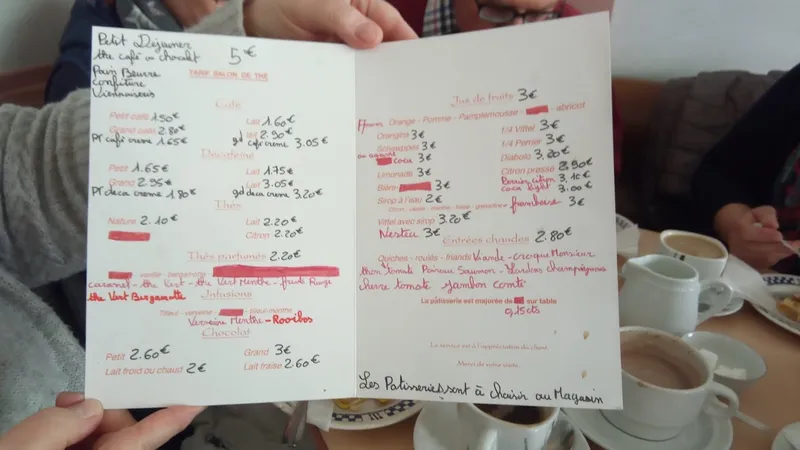 Petit Déjeuner
the café ou chocolat 5€
Pain Beurre
confiture
Viennoiseris
TARIF SALON DE THÉ
Café
Petit café 1.50€ Lait 1.60€
Grand café 2.80€ lait 2.90€
Pt café creme 1.65€ gd café creme 3.05€
Décaféiné
Petit 1.65€ Lait 1.75€
Grand 2.95€ Lait 3.05€
Pt deca creme 1.80€ gd deca creme 3.20€
Thés
Nature 2.10€ Lait 2.20€
Citron 2.20€
Thés parfumés 2.20€
vanille - bergamote
caramel - the Vert - the Vert Menthe - fruits Rouge
the Vert Bergamotte
Infusions
Tilleul - verveine - tilleul-menthe
Verveine Menthe - Rooibos
Chocolat
Petit 2.60€ Grand 3€
Lait froid ou chaud 2€ Lait fraise 2.60€
Jus de fruits 3€
Orange - Pomme - Pamplemousse - abricot
Orangina 3€ 1/4 Vittel 3€
Schweppes 3€ 1/4 Perrier 3€
coca 3€ Diabolo 3.20€
Limonade 3€ Citron pressé 2,90€
Bière 3€
coca light 3.00€
Sirop à l'eau 2€ framboise 3€
Vittel avec sirop 3.20€
Nestea 3€
Entrées chaudes 2.80€
Quiches - roulés - friands Viande - croque Monsieur
thon tomate Poireaux Saumon - Lardons champignons
chevre tomate jambon comté
La pâtisserie est majorée de sur table
0,15cts
Le service est à l'appréciation du client
Merci de votre visite.
Les Patisseries sont à choisir au Magasin